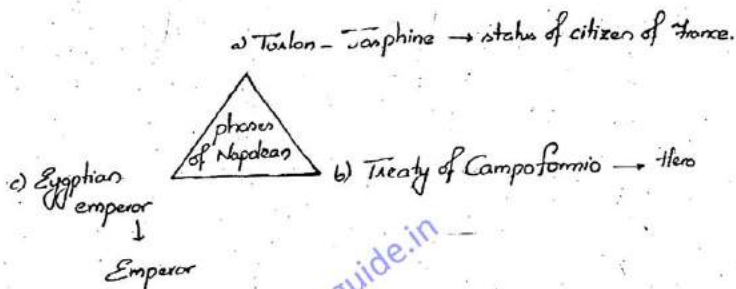 a) Toulon - Josphine → status of citizen of France.
phases
of Napolean
b) Treaty of Campoformio → Hero
c) Eygptian
emperor
↓
Emperor
uide.in